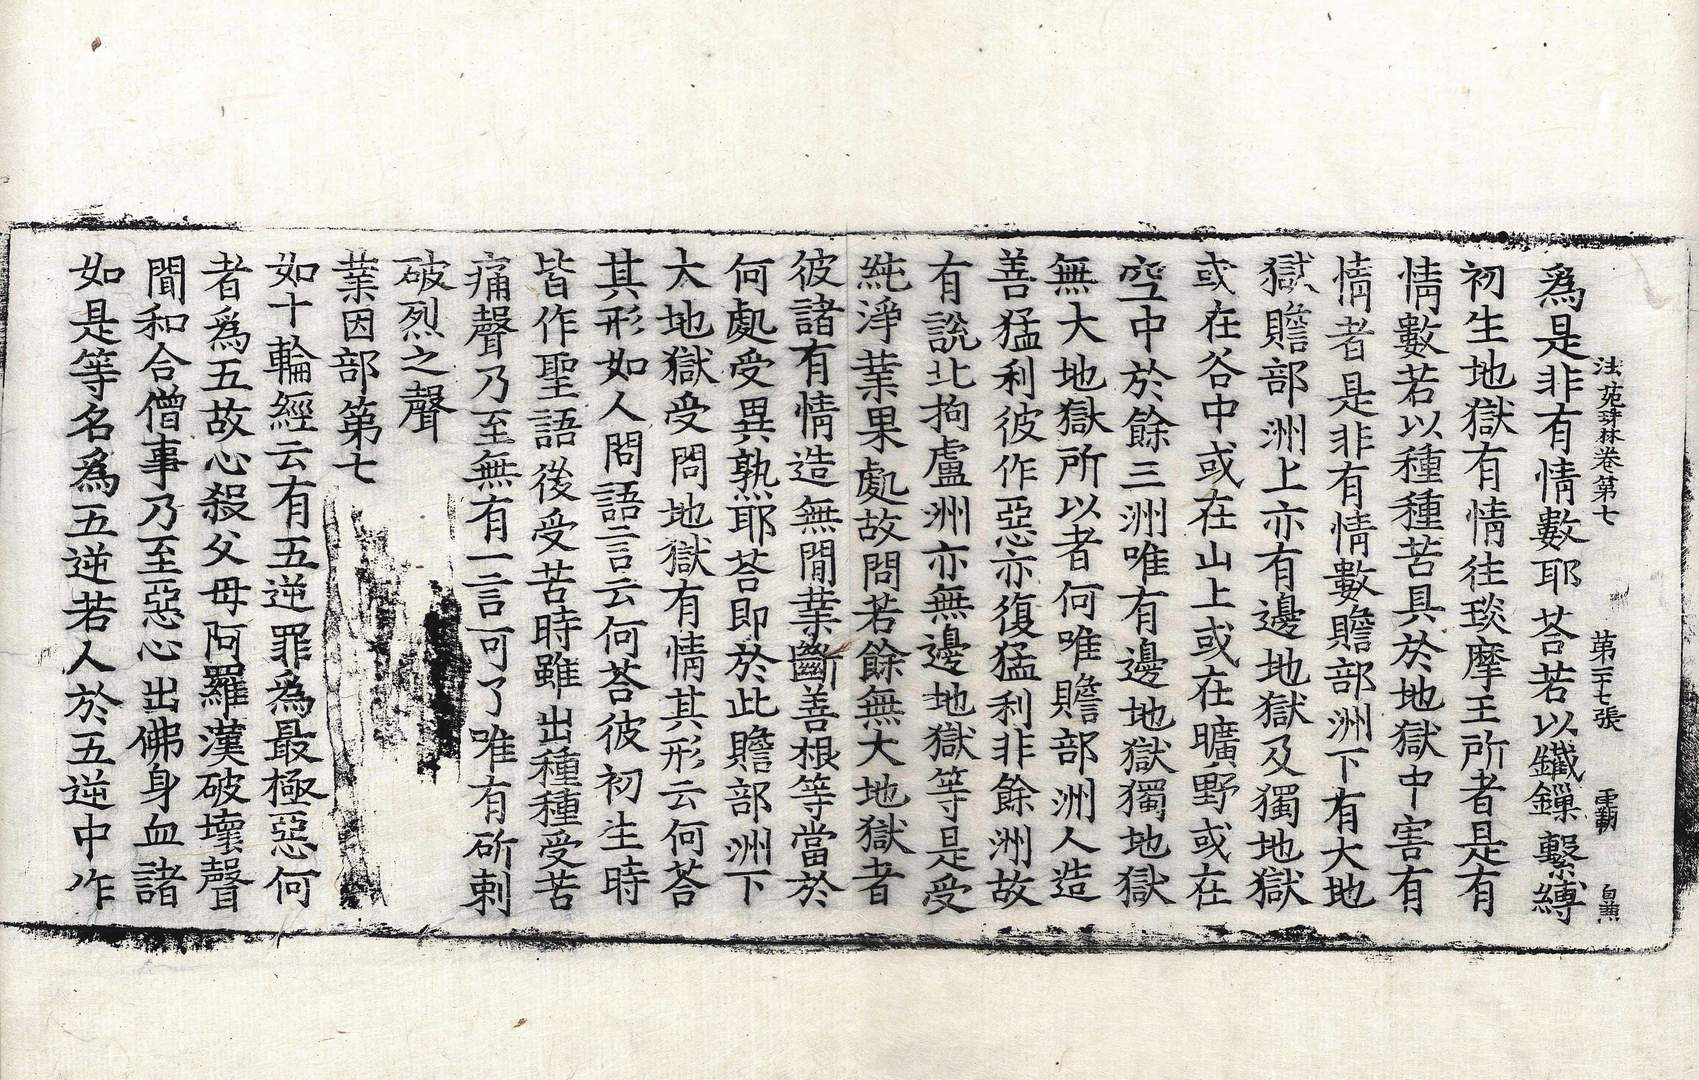 法苑珠林卷第七 第二十七張 重勘 自熏
爲是非有情數耶荅若以鐵鏁繫縛
初生地獄有情往琰摩王所者是有
情數若以種種苦具於地獄中害有
情者是非有情數贍部洲下有大地
獄贍部洲上亦有邊地獄及獨地獄
或在谷中或在山上或在曠野或在
空中於餘三洲唯有邊地獄獨地獄
無大地獄所以者何唯贍部洲人造
善猛利彼作惡亦復猛利非餘洲故
有說北拘盧洲亦無邊地獄等是受
純淨業果處故問若餘無大地獄者
彼諸有情造無間業斷善根等當於
何處受異熟耶荅即於此贍部洲下
大地獄受問地獄有情其形云何荅
其形如人問語言云何荅彼初生時
皆作聖語後受苦時雖出種種受苦
痛聲乃至無有一言可了唯有斫刺
破烈之聲
業因部第七
如十輪經云有五逆罪爲最極惡何
者爲五故心殺父母阿羅漢破壞聲
聞和合僧事乃至惡心出佛身血諸
如是等名爲五逆若人於五逆中作